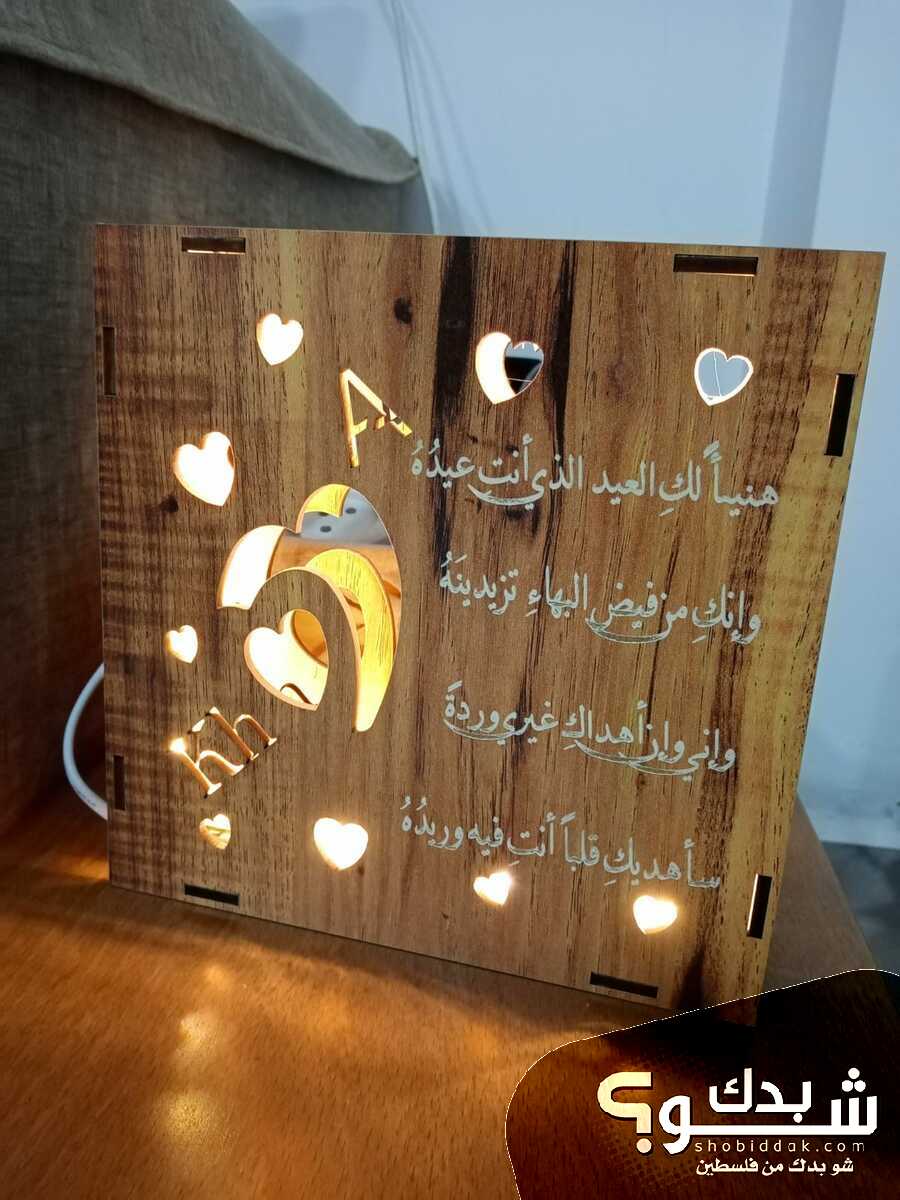 A
هنيئاً لكِ العيد الذي أنتِ عيدُهُ
وإنكِ من فيض البهاءِ تزيدينَهُ
وإني وإن أهداكِ غيري وردةً
سأهديكِ قلباً أنتِ فيه وريدُهُ
Kh
شو بدك؟
shobiddak.com
شو بدك من فلسطين